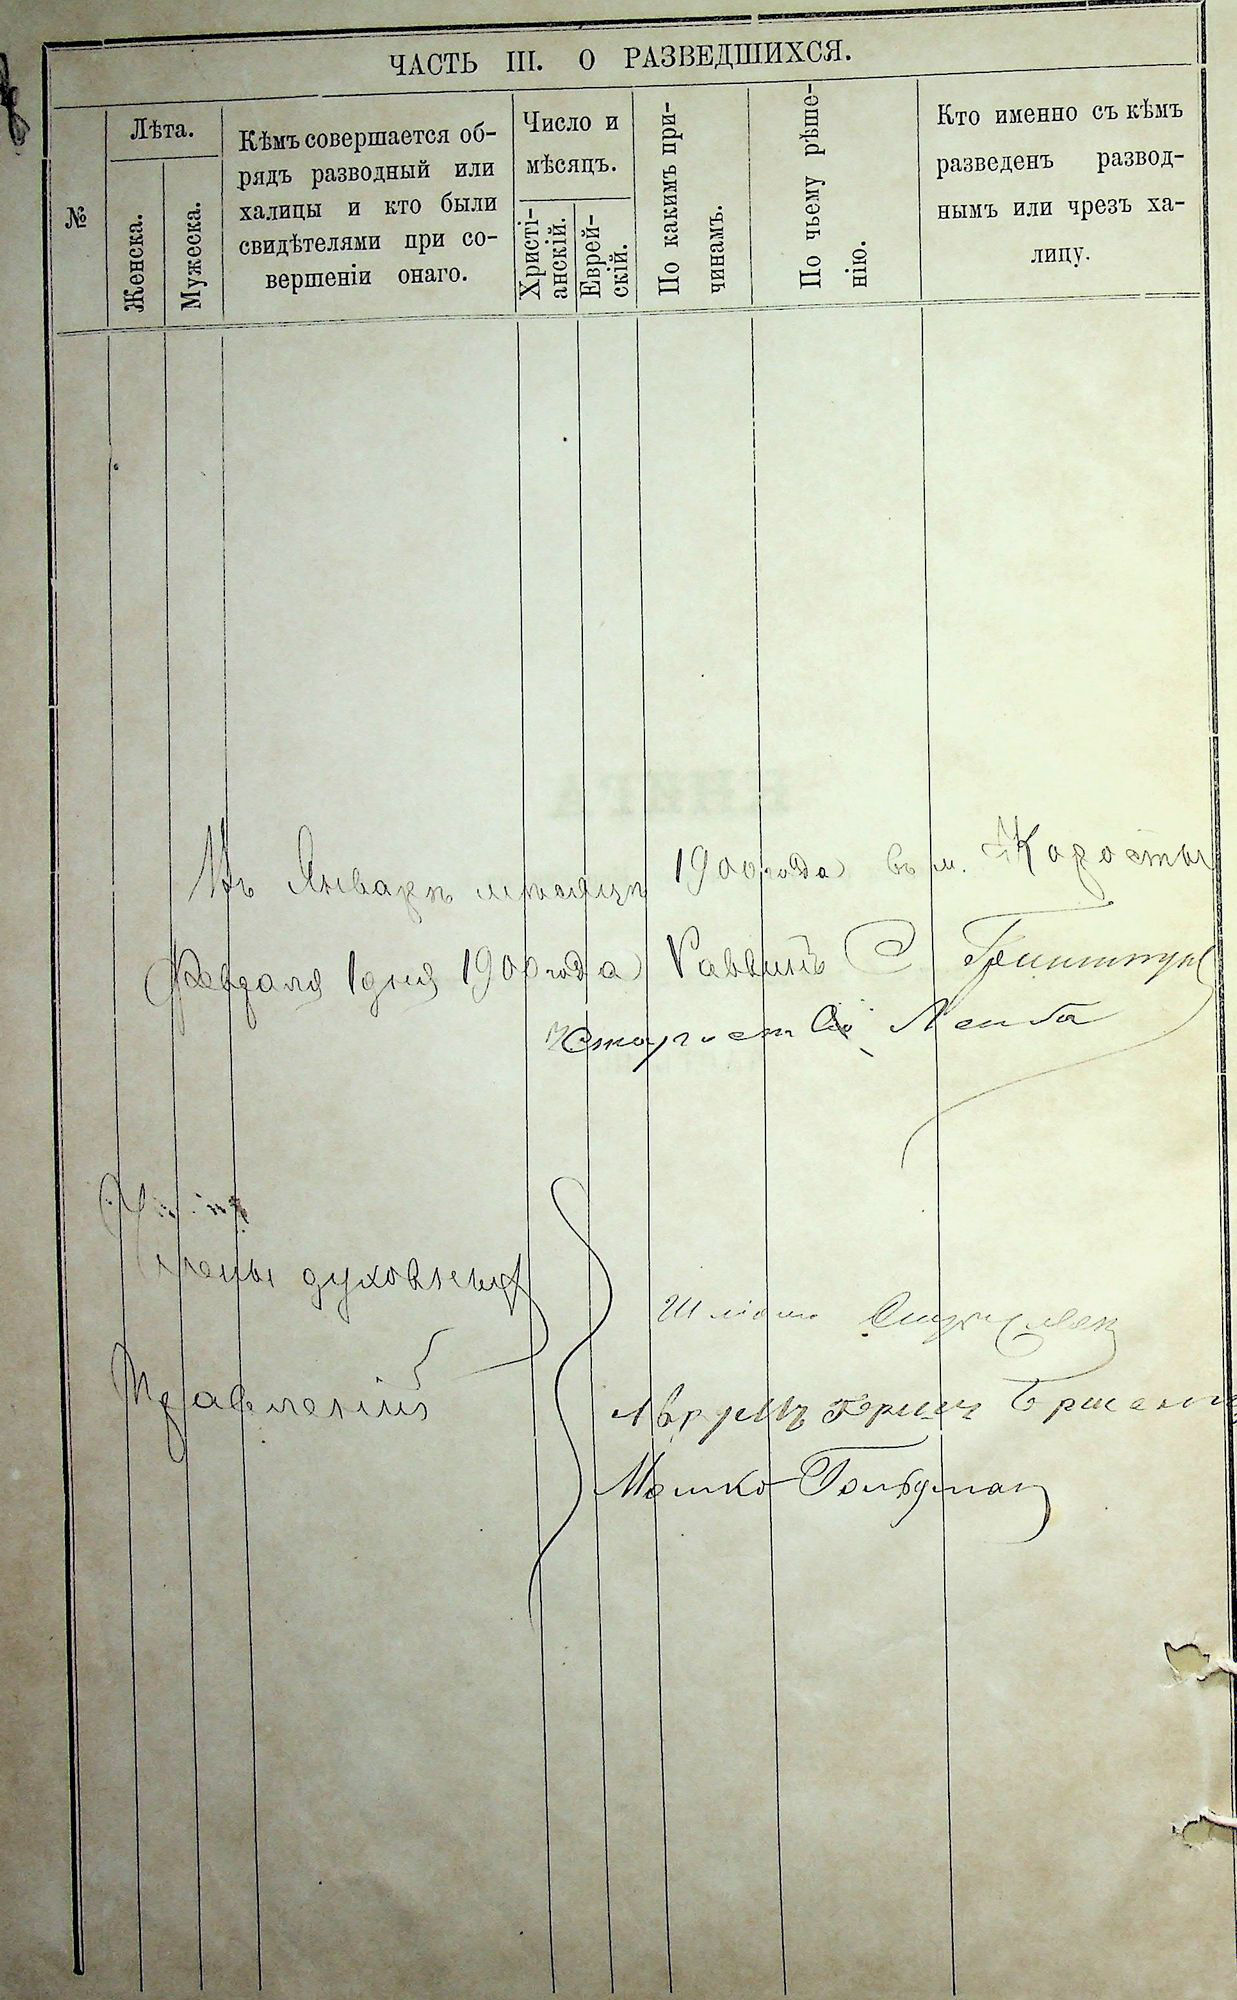 ЧАСТЬ III. О РАЗВЕДШИХСЯ.
№
Лѣта.
Женска.
Мужеска.
Кѣмъ совершается об-
рядъ разводный или
халицы и кто были
свидѣтелями при со-
вершеніи онаго.
Число и
мѣсяцъ.
Христі-
анскій.
Еврей-
скій.
По какимъ при-
чинамъ.
По чьему рѣше-
нію.
Кто именно съ кѣмъ
разведенъ развод-
нымъ или чрезъ ха-
лицу.
Въ Январѣ мѣсяцѣ 1900 года въ м.
Февраля 1 дня 1900 года Раввинъ С
Староста Лейба
Члены духовныхъ
Правленій
Шліома
Аврумъ Гершъ
Мошко Гольдман